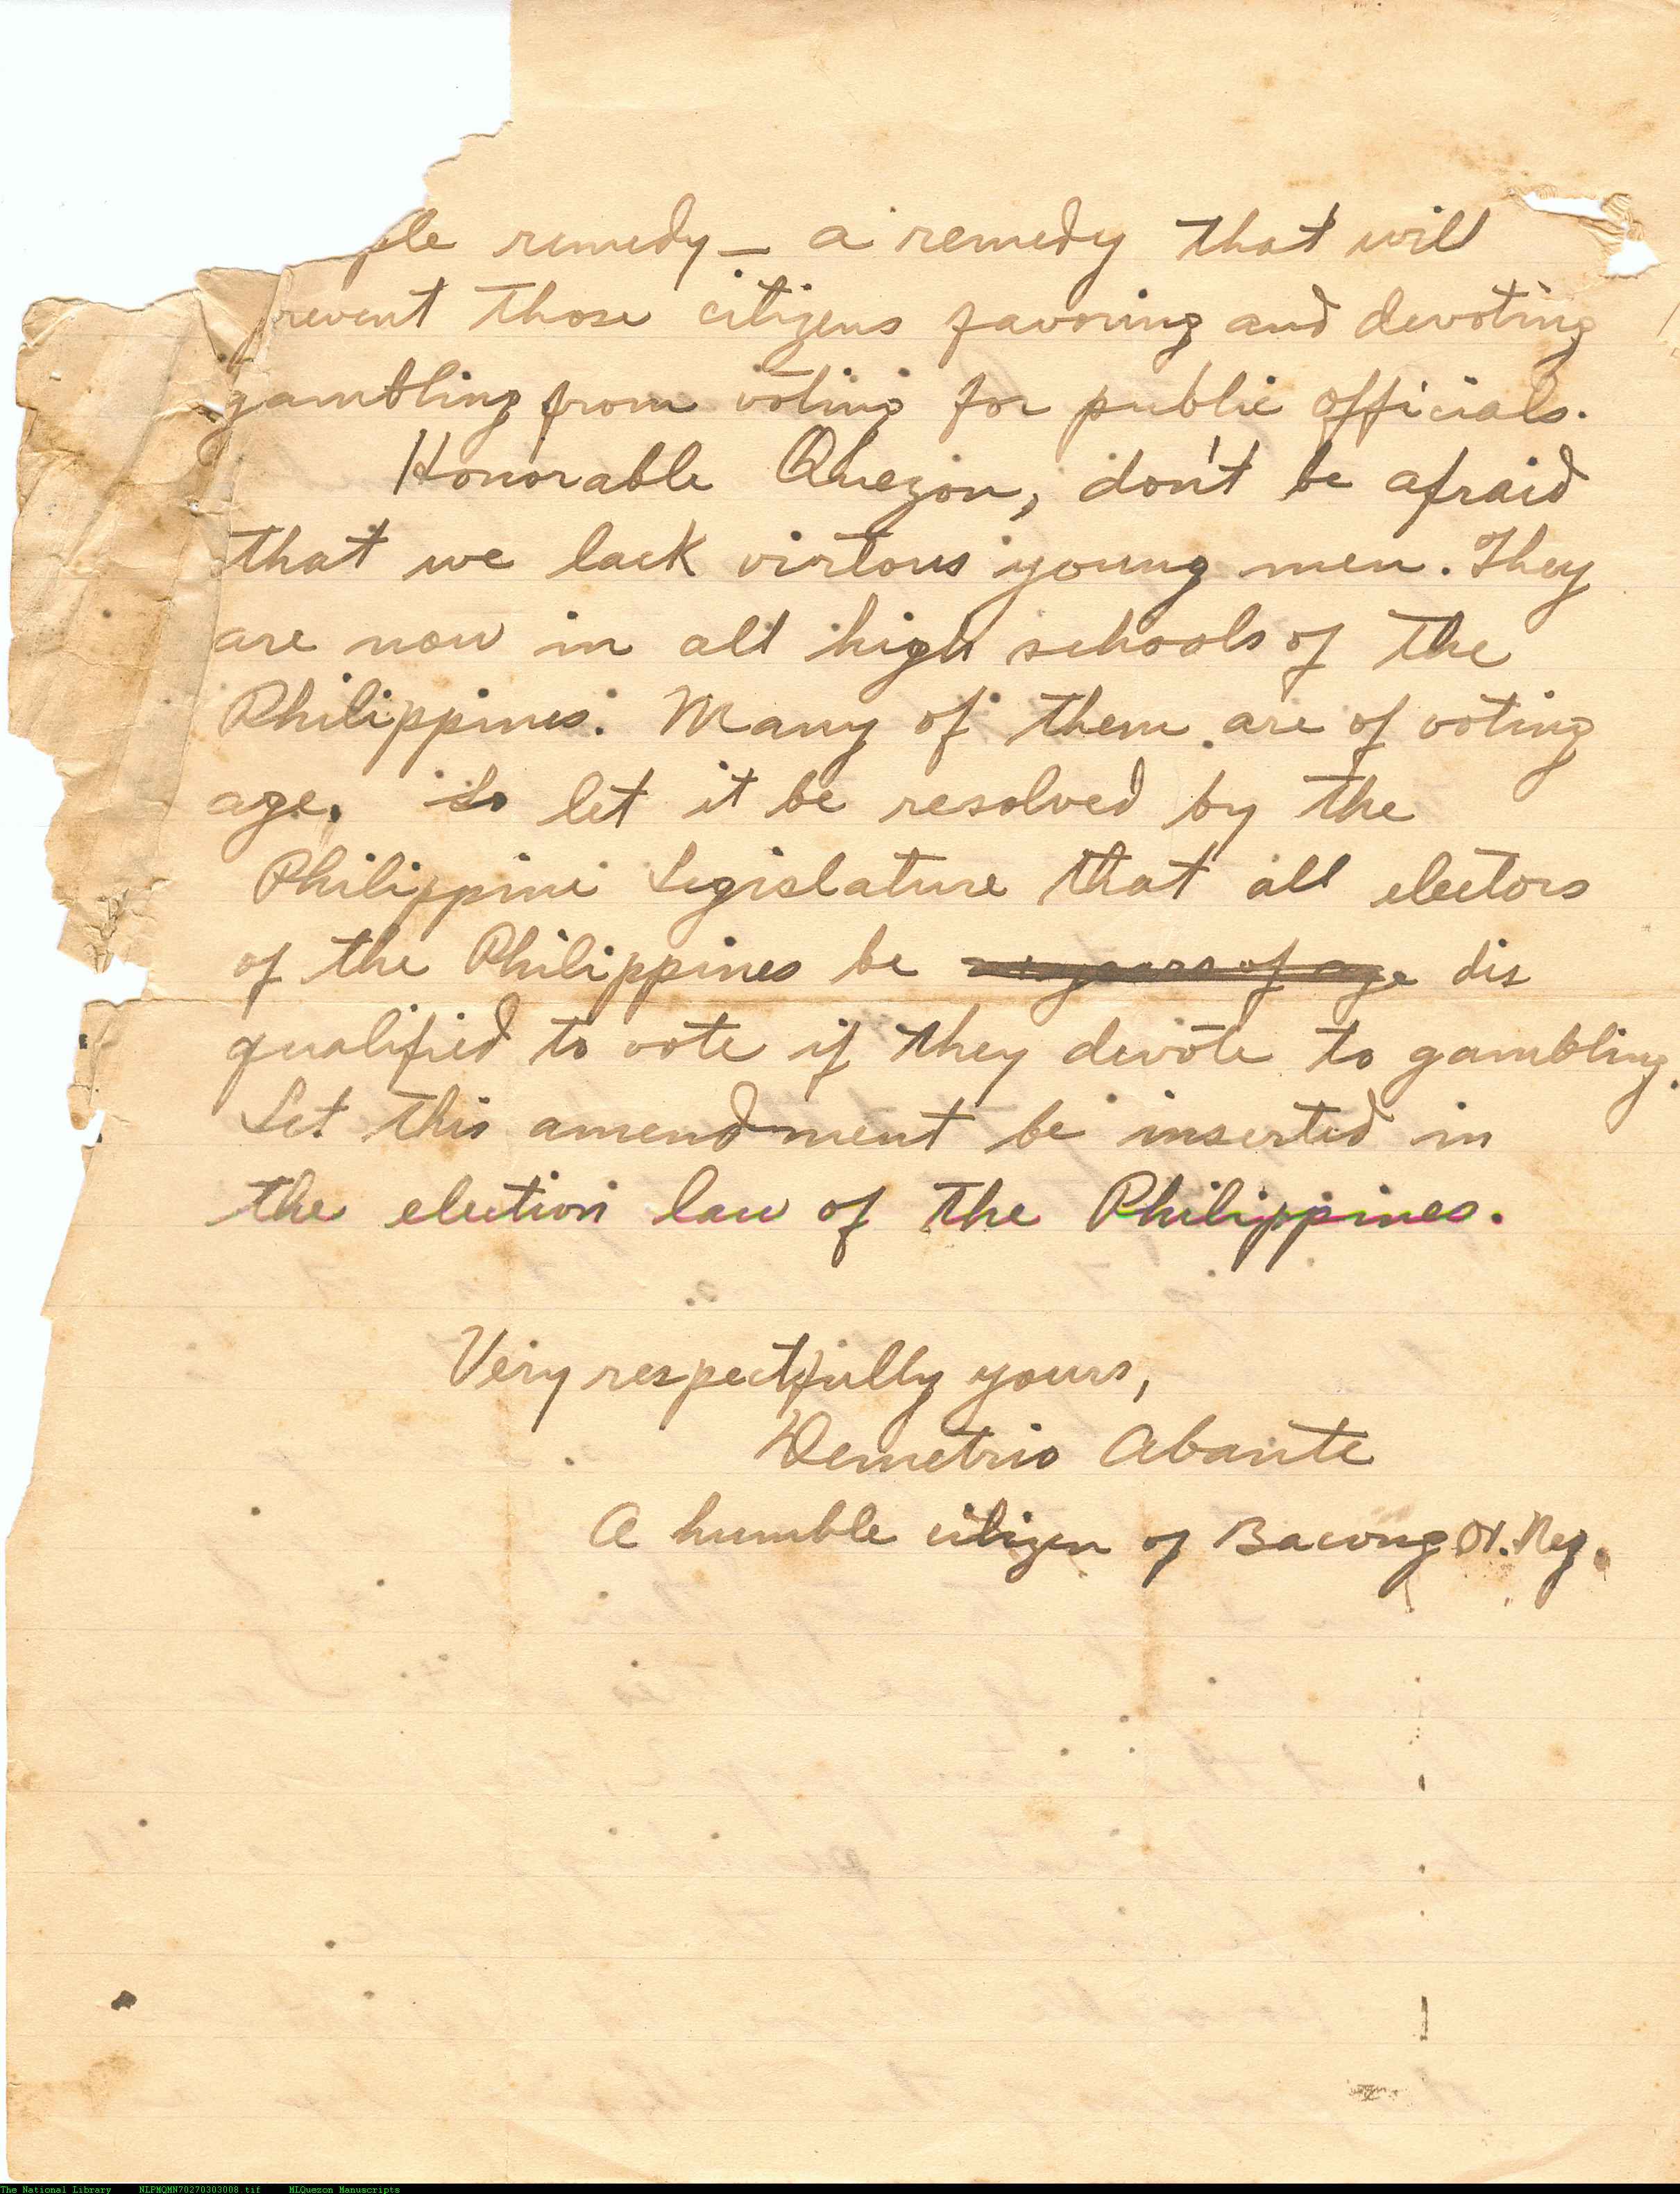 ple remedy — a remedy that will
revent those citizens favoring and devoting
gambling from voting for public officials.
Honorable Quezon, don't be afraid
that we lack virtous young men. They
are now in all high schools of the
Philippines. Many of them are of voting
age. So let it be resolved by the
Philippine Legislature that all electors
of the Philippines be years of age dis
qualified to vote if they devote to gambling.
Let this amendment be inserted in
the election law of the Philippines.
Very respectfully yours,
Demetrio Abante
A humble citizen of Bacong Or. Neg.
The National Library NLPMQMN70270303008.tif MLQuezon Manuscripts